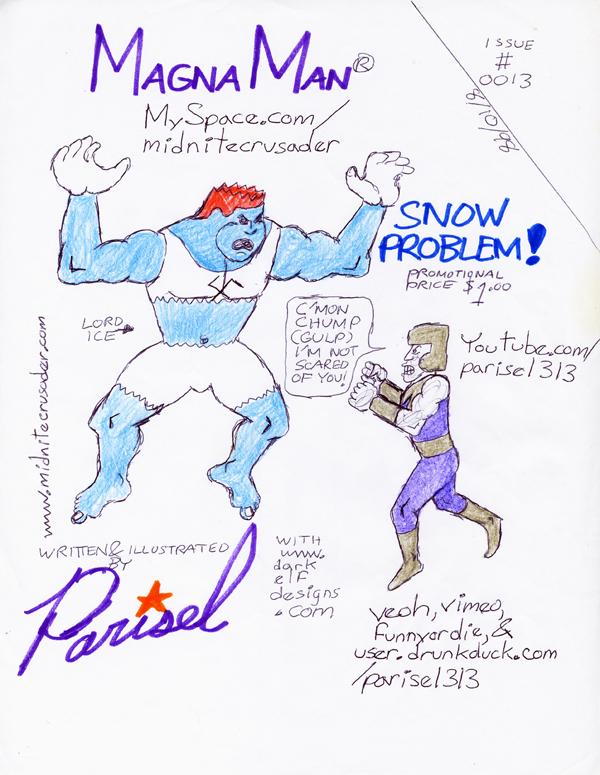 MAGNA MAN®
MySpace.com/
midnitecrusader
ISSUE
#
0013
SNOW
PROBLEM!
PROMOTIONAL
PRICE $1.00
LORD
ICE
C'MON
CHUMP
(GULP)
I'M NOT
SCARED
OF YOU!
YouTube.com/
parisel313
www.midnitecrusader.com
WRITTEN & ILLUSTRATED
BY
Parisel
WITH
www.
dark
elf
designs
.com
veoh, vimeo,
funnyordie, &
user.drunkduck.com
/parisel313